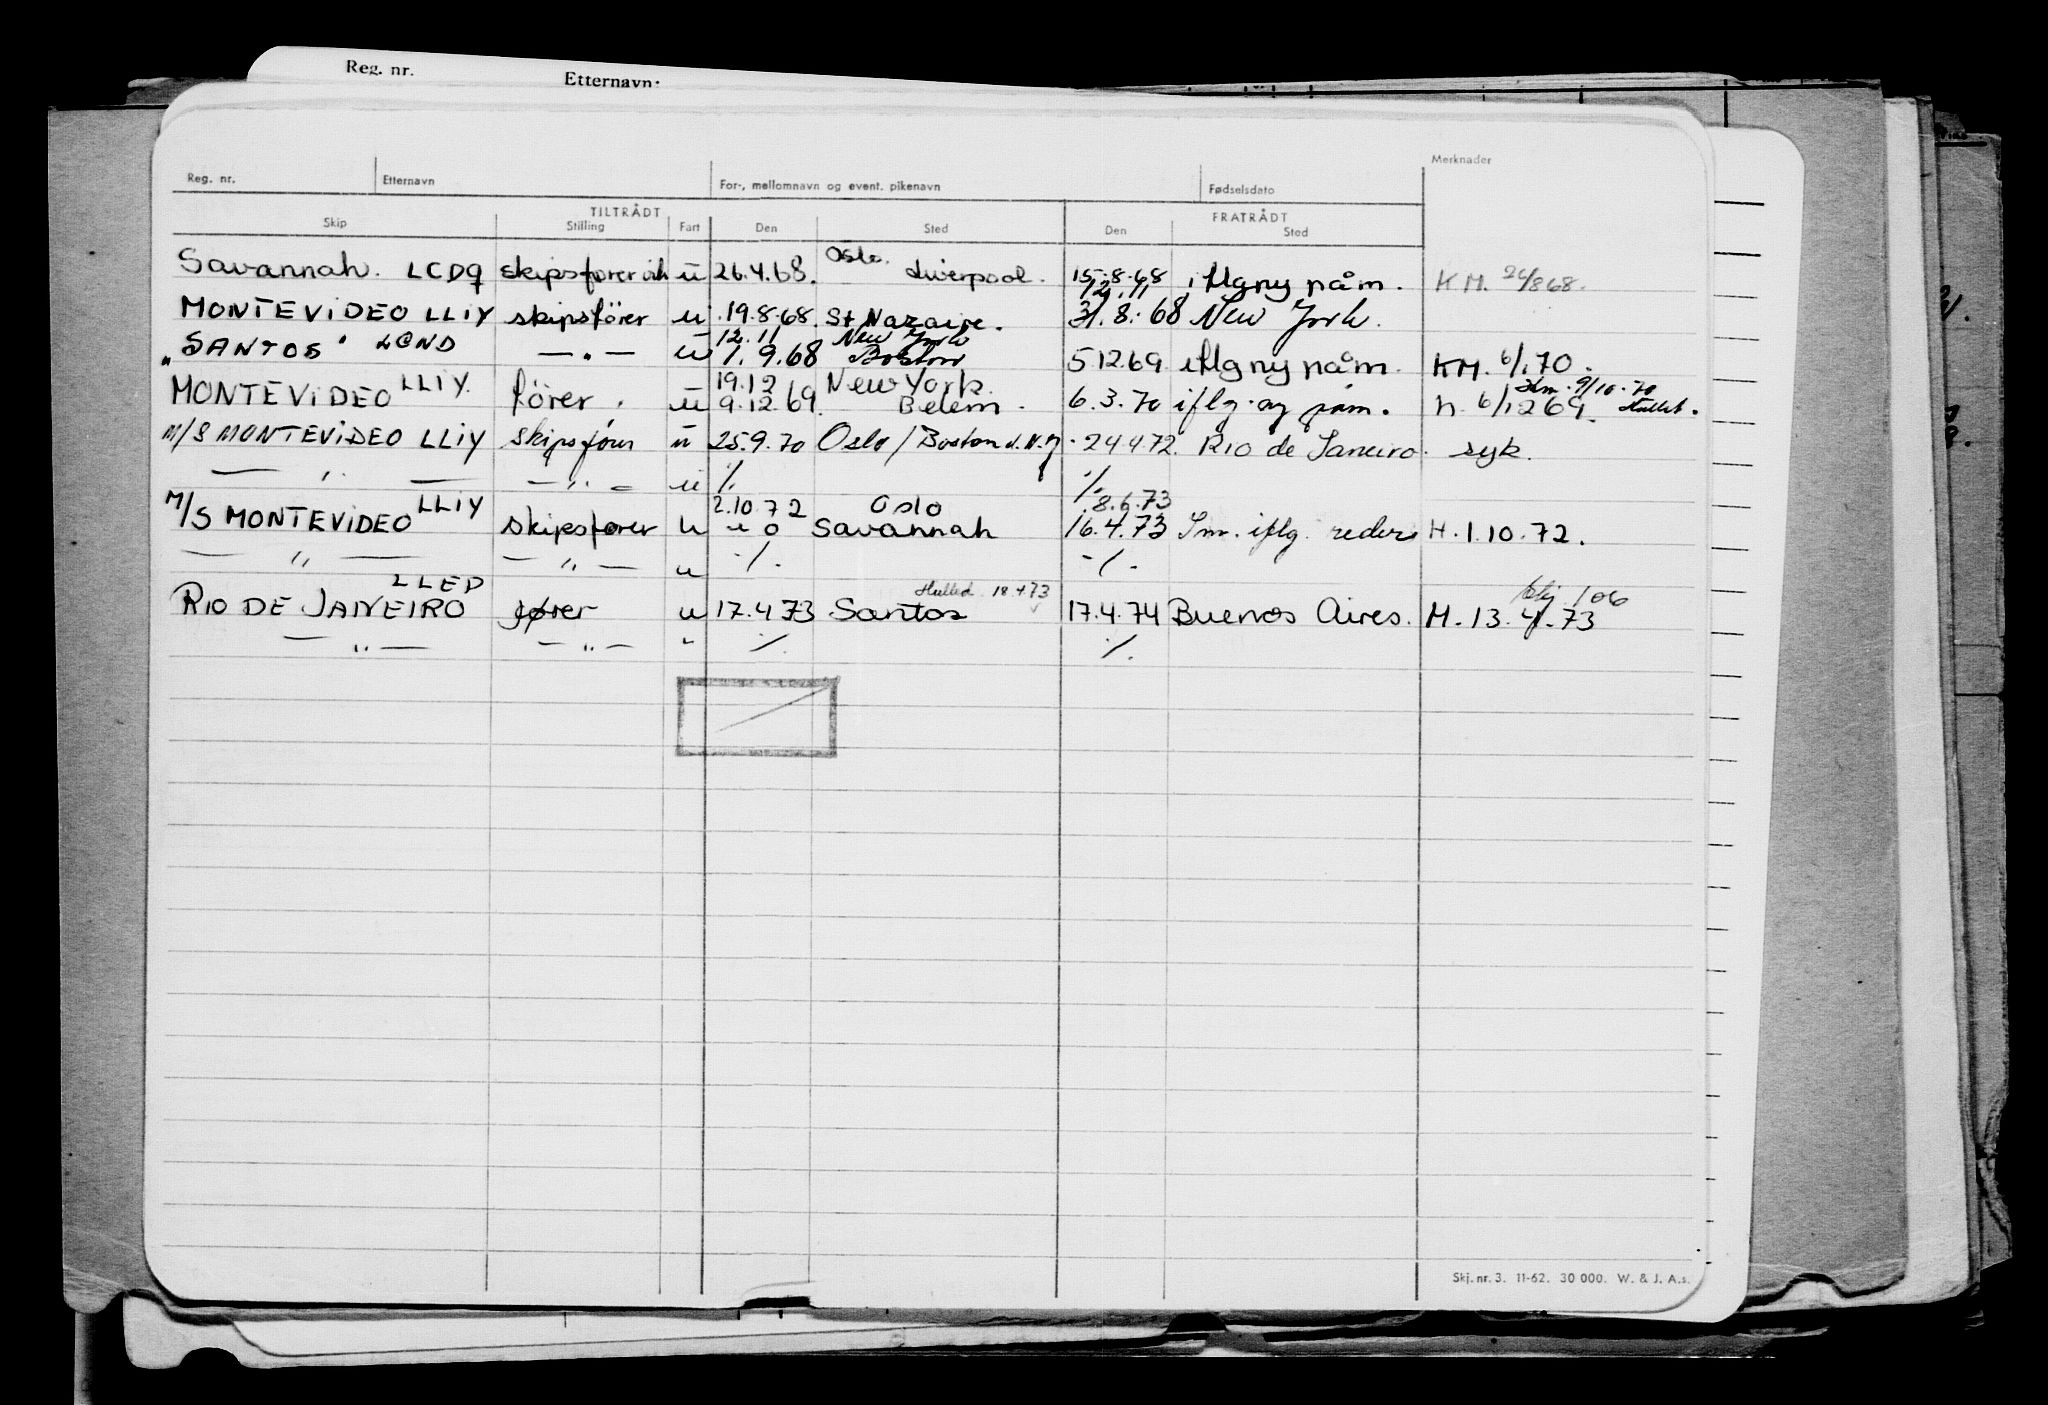 Reg. nr. Etternavn:
Merknader
Reg. nr. Etternavn For-, mellomnavn og event. pikenavn Fødselsdato
TILTRÅDT FRATRÅDT
Skip Stilling Fart Den Sted Den Sted
Oslo.
Savannah. LCDQ skipsfører u 26.4.68. Liverpool. 15.8.68 iflg ny påm. KM. 24/868.
12.11
MONTEVIDEO LLIY skipsfører u 19.8.68. St Nazaire. 31.8.68 New York.
12.11 New York
"SANTOS" LCND — " — u 1.9.68 Boston 5 12 69 iflg ny påm KM. 6/1.70.
LLIY. 19.12 New York. Hm. 9/10.70
MONTEVIDEO fører. u 9.12.69. Belem. 6.3.70 iflg. ny påm. h. 6/1269. Hullet.
M/S MONTEVIDEO LLIY skipsfører u 25.9.70 Oslo / Boston 24.4.72. Rio de Janeiro. syk.
— " — — " — u ./. ./.
LLIY 2.10.72 Oslo 8.6.73
M/S MONTEVIDEO skipsfører u u o Savannah 16.4.73 Sm. iflg. rederi H. 1.10.72.
— " — — " — u ./. ./.
LLED Hulled 18 4 73 106
RIO DE JANEIRO fører u 17.4.73 Santos 17.4.74 Buenos Aires. M. 13.4.73
— " — — " — " ./. ./.
Skj. nr. 3. 11-62. 30 000. W. & J. A.s.